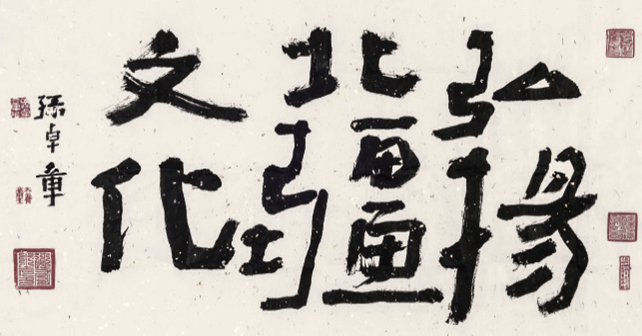 弘扬
北疆
文化
孫卓章